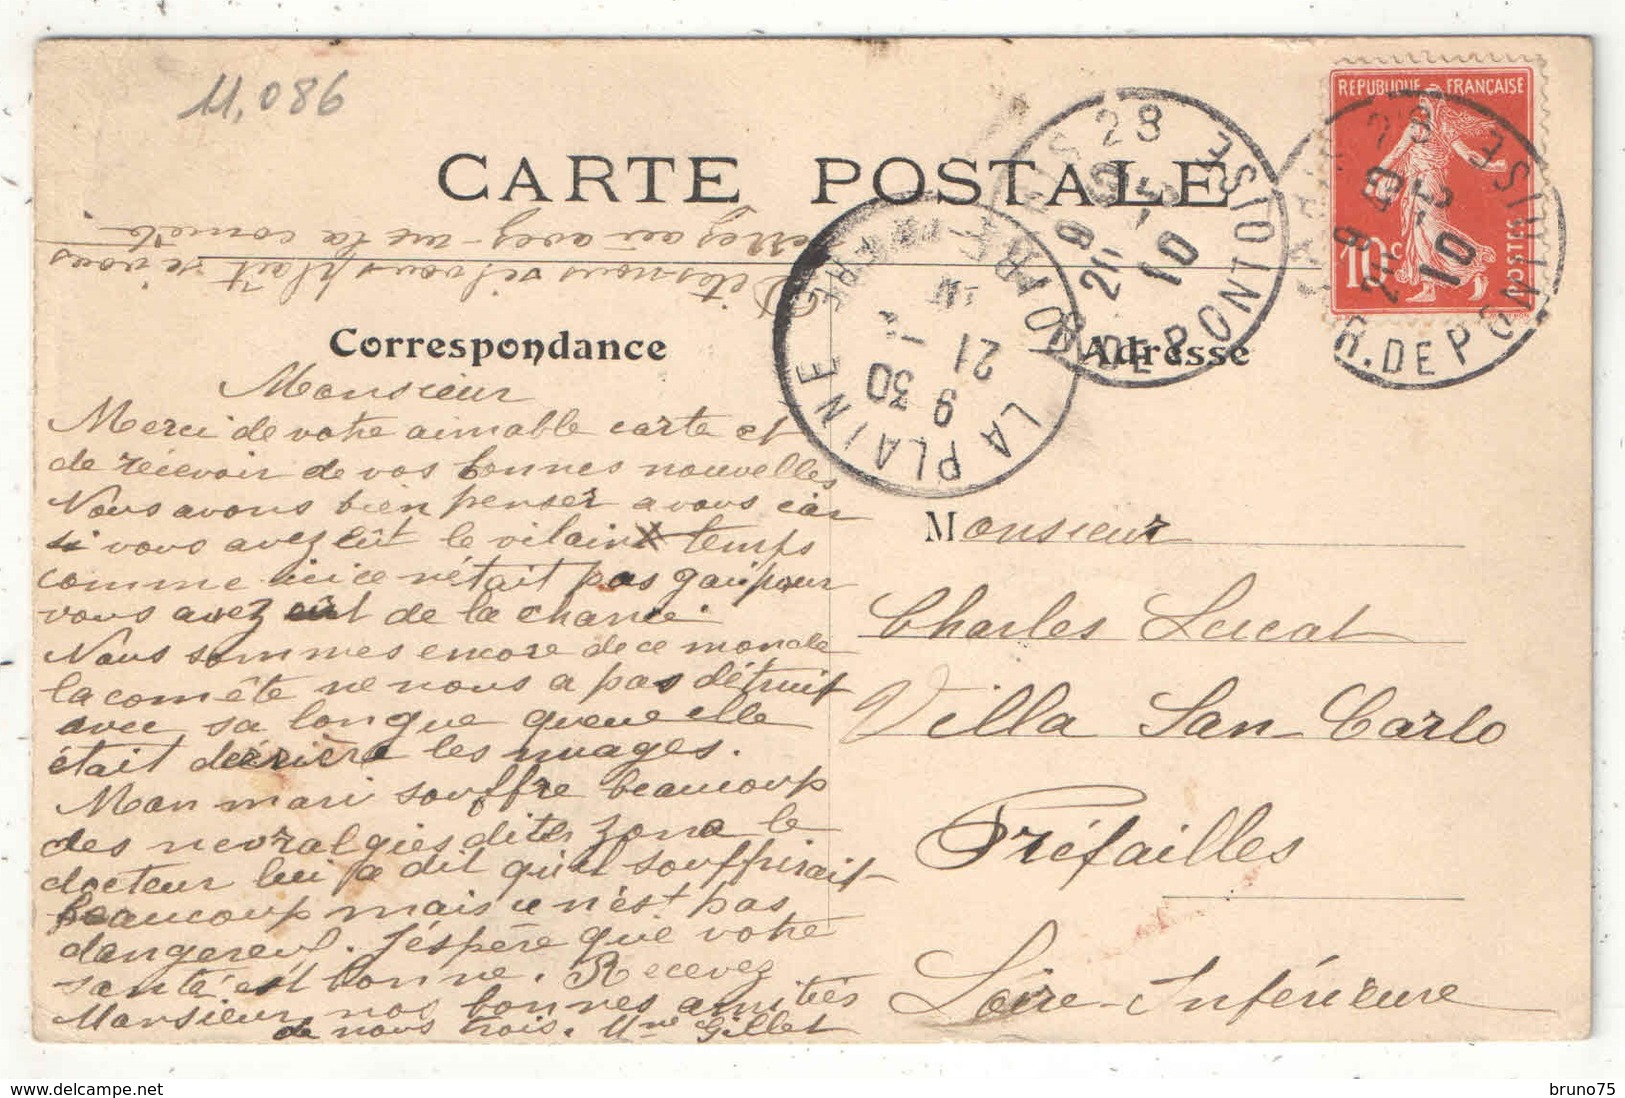 11,086
CARTE POSTALE
RÉPUBLIQUE FRANÇAISE
10c
POSTES
PARIS 28
R. DE PONTOISE
8 40
20 - 5
10
PARIS 28
R. DE PONTOISE
8
20 - 5
10
LA PLAINE
LOIRE INFRE
9 30
21 - 5
Dites-nous s'il vous plaît si vous
verrez ou avez-vue la comète
Correspondance
Adresse
Monsieur
Merci de votre aimable carte et
de recevoir de vos bonnes nouvelles
Nous avons bien penser a vous car
si vous avez eût le vilain temps
comme ici ce n'était pas gai pour
vous avez eût de la chance.
Nous sommes encore de ce monde
la comête ne nous a pas détruit
avec sa longue queue elle
était derrière les nuages.
Mon mari souffre beaucoup
des nevralgies dites zona le
docteur lui a dit qu'il souffrirait
beaucoup mais ce n'est pas
dangereux. J'éspère que votre
santé est bonne. Recevez
Monsieur nos bonnes amitiés
de nous trois. Mme Gillet
Monsieur
Charles Lucat
Villa San-Carlo
Préfailles
Loire-Inférieure
bruno75